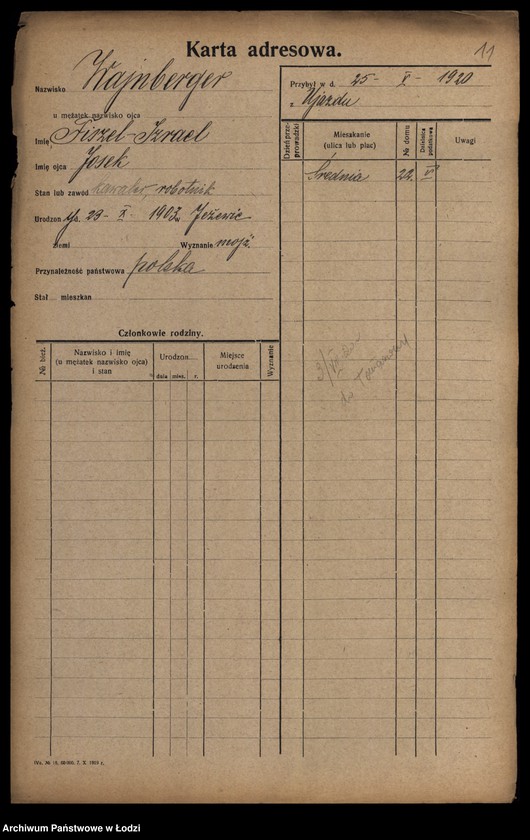 Karta adresowa.
11
Nazwisko Wajnberger
u mężatek nazwisko ojca
Imię Fiszel-Izrael
Imię ojca Josek
Stan lub zawód kawaler, robotnik
Urodzon y d. 23 - X - 1903 w Jeżewie
ziemi Wyznanie mojż.
Przynależność państwowa polska
Stał mieszkan
Przybył w d. 25 - V - 1920
z Ujazdu
Dzień przeprowadzki
Mieszkanie
(ulica lub plac)
№ domu
Dzielnica podatkowa
Uwagi
Średnia 22. VI
Członkowie rodziny.
№ bież.
Nazwisko i imię
(u mężatek nazwisko ojca)
i stan
Urodzon
dnia mies. r.
Miejsce
urodzenia
Wyznanie
do Tomaszowa
Archiwum Państwowe w Łodzi